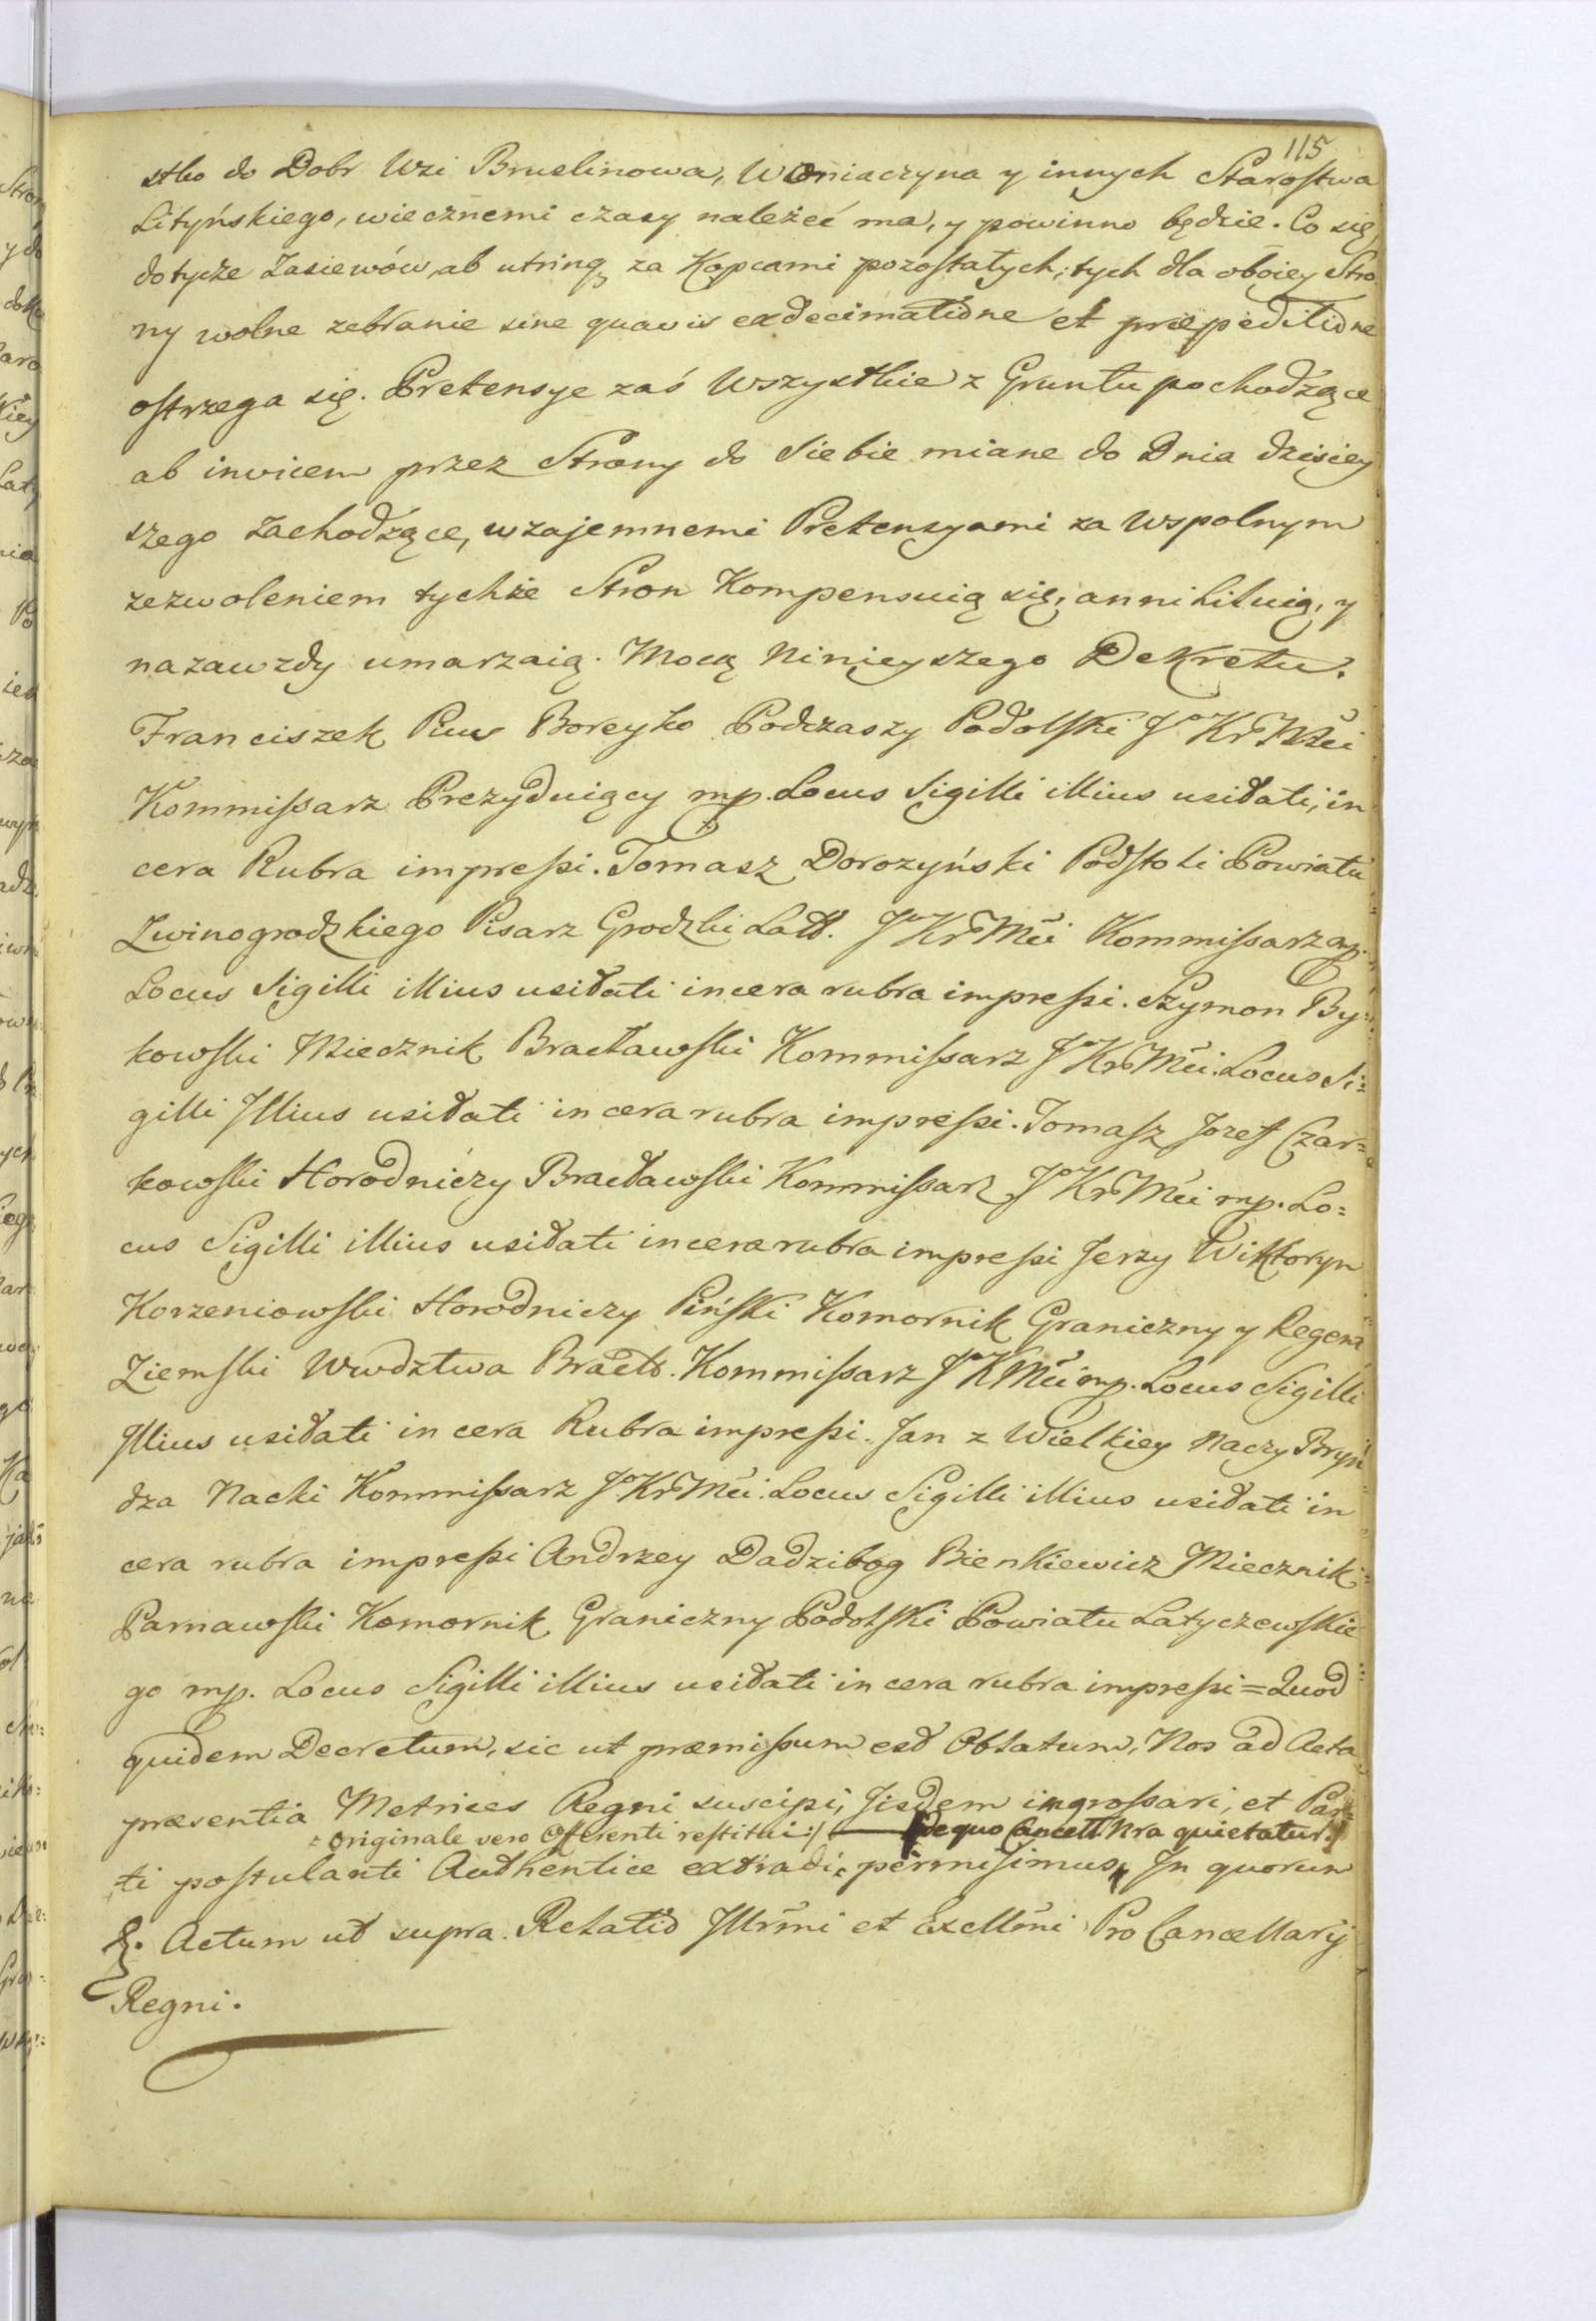 115
stko do Dobr Wsi Bruslinowa, Woniaczyna y innych Starostwa
Lityńskiego, wiecznemi czasy należeć ma, y powinno będzie. Co się
dotycze Zasiewów, ab utrinq za Kopcami pozostałych; tych dla oboiey Stro
ny wolne zebranie sine quavis exdecimatione et præpeditione
ostrzega się. Pretensye zaś Wszystkie z Gruntu pochodzące
ab invicem przez Strony do Siebie miane do Dnia dzisiey
szego Zachodzące, wzajemnemi Pretensyami za Wspolnym
zezwoleniem tychże Stron Kompensuią się, annihiluią, y
nazawzdy umarzaią. Mocą Ninieyszego Dekretu.
Franciszek Pius Boreyko Podczaszy Podolski JoKrMci
Kommissarz Prezyduiący mp. Locus Sigilli illius usitati, in
cera Rubra impressi. Tomasz Dorozyński Podstoli Powiatu
Zwinogrodzkiego Pisarz Grodzki Latt. JoKrMci Kommissarz mp.
Locus Sigilli illius usitati in cera rubra impressi. Szymon By=
kowski Miecznik Bracławski Kommissarz JoKrMci. Locus Si=
gilli Illius usitati in cera rubra impressi. Tomasz Jozef Czar=
kowski Horodniczy Bracławski Kommissarz JoKrMci mp. Lo=
cus Sigilli illius usitati in cera rubra impressi Jerzy Wiktoryn
Korzeniowski Horodniczy Piński Komornik Graniczny y Regent
Ziemski Wwdztwa Bracł. Kommissarz JoKMci mp. Locus Sigilli
Illius usitati in cera Rubra impressi. Jan z Wielkiey Naczy Bryn
dza Nacki Kommissarz JoKrMci. Locus Sigilli illius usitati in
cera rubra impressi Andrzey Dadzibog Bienkiewicz Miecznik
Parnawski Komornik Graniczny Podolski Powiatu Latyczewskie
go mp. Locus Sigilli illius usitati in cera rubra impressi = Quod
quidem Decretum, sic ut præmissum est Oblatum, Nos ad Acta
præsentia Metrices Regni suscipi, Iisdem ingrossari, et Par
= Originale vero Offerenti restitui :/ de quo Cancell. Nra quietatur.
ti postulanti Authentice extradi, permisimus. In quorum
&. Actum ut supra. Relatio Illrmi et Excellmi Pro Cancellarij
Regni.